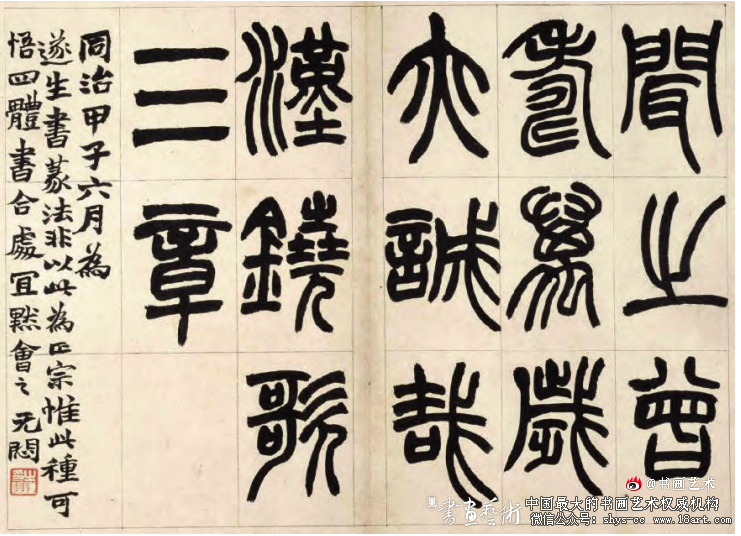 聞之曾
壽萬歲
亦誠哉
漢鐃歌
三章
同治甲子六月為
遂生書篆法非以此為正宗惟此種可
悟四體書合處宜默會之 无悶
@书画艺术
書畫藝術
中国最大的书画艺术权威机构
微信公众号：shys-cc www.18art.com